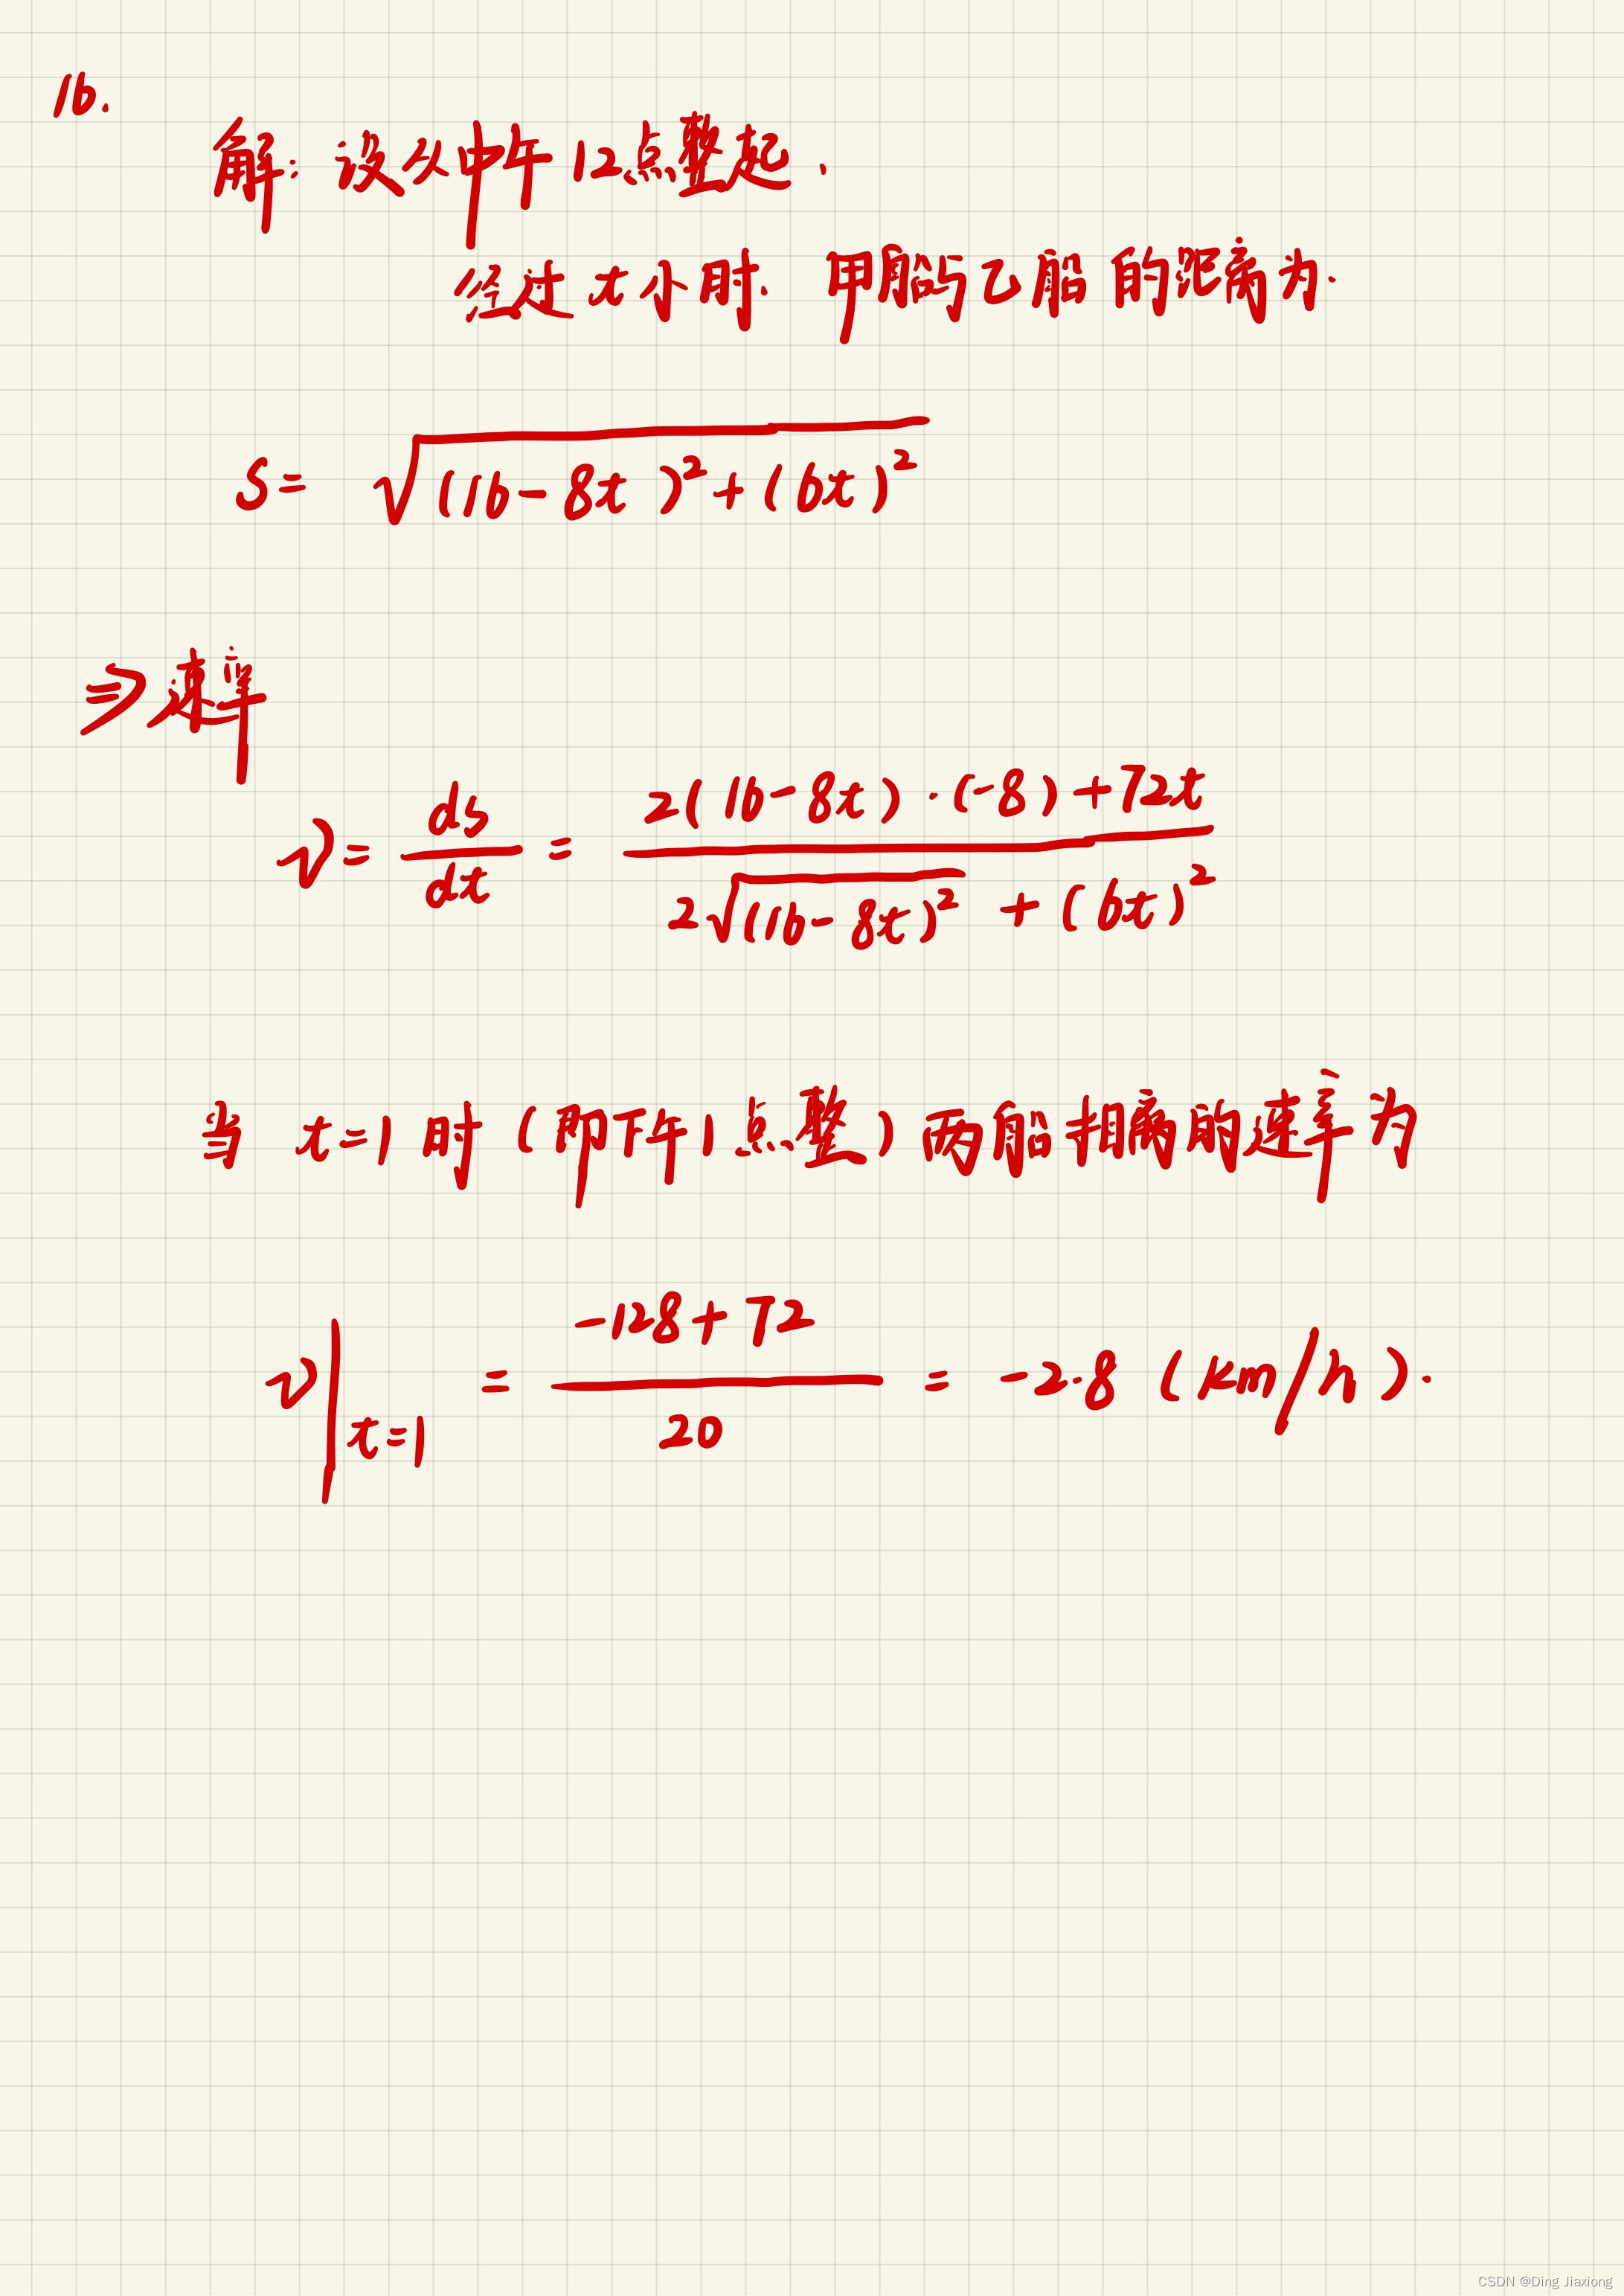 16.
解：设从中午12点整起.
经过t小时. 甲船与乙船的距离为.
S= √((16-8t)²+(6t)²)
⇒速率
v= ds/dt = (2(16-8t)·(-8)+72t)/(2√((16-8t)²) + (6t)²)
当 t=1时(即下午1点整)两船相离的速率为
v|t=1 = (-128+72)/20 = -2.8 (km/h).
CSDN @Ding Jiaxiong